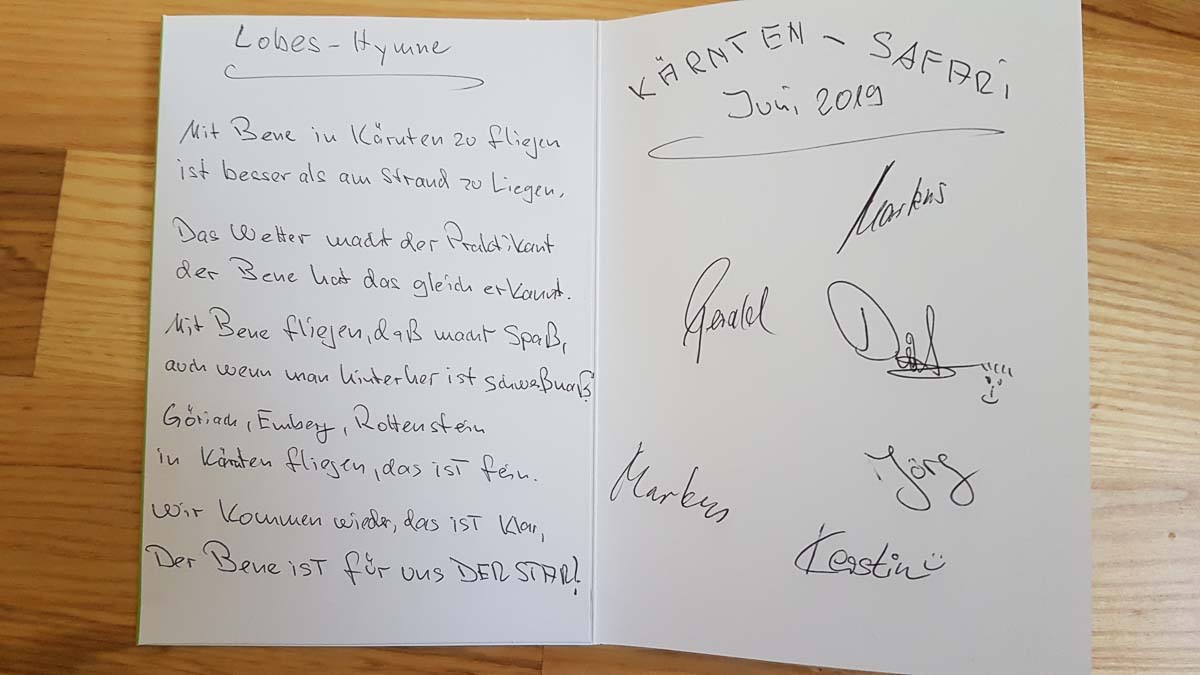 Lobes-Hymne
Mit Bene in Kärnten zu fliegen
ist besser als am Strand zu Liegen,
Das Wetter macht der Praktikant
der Bene hat das gleich erkannt.
Mit Bene fliegen, daß macht Spaß,
auch wenn man hinterher ist schweßnaß
Göriach, Emberg, Rottenstein
in Kärnten fliegen, das ist fein.
Wir kommen wieder, das ist klar,
Der Bene ist für uns DER STAR!
KÄRNTEN - SAFARi
Juni 2019
Markus
Gerald
Markus
Jörg
Kerstin